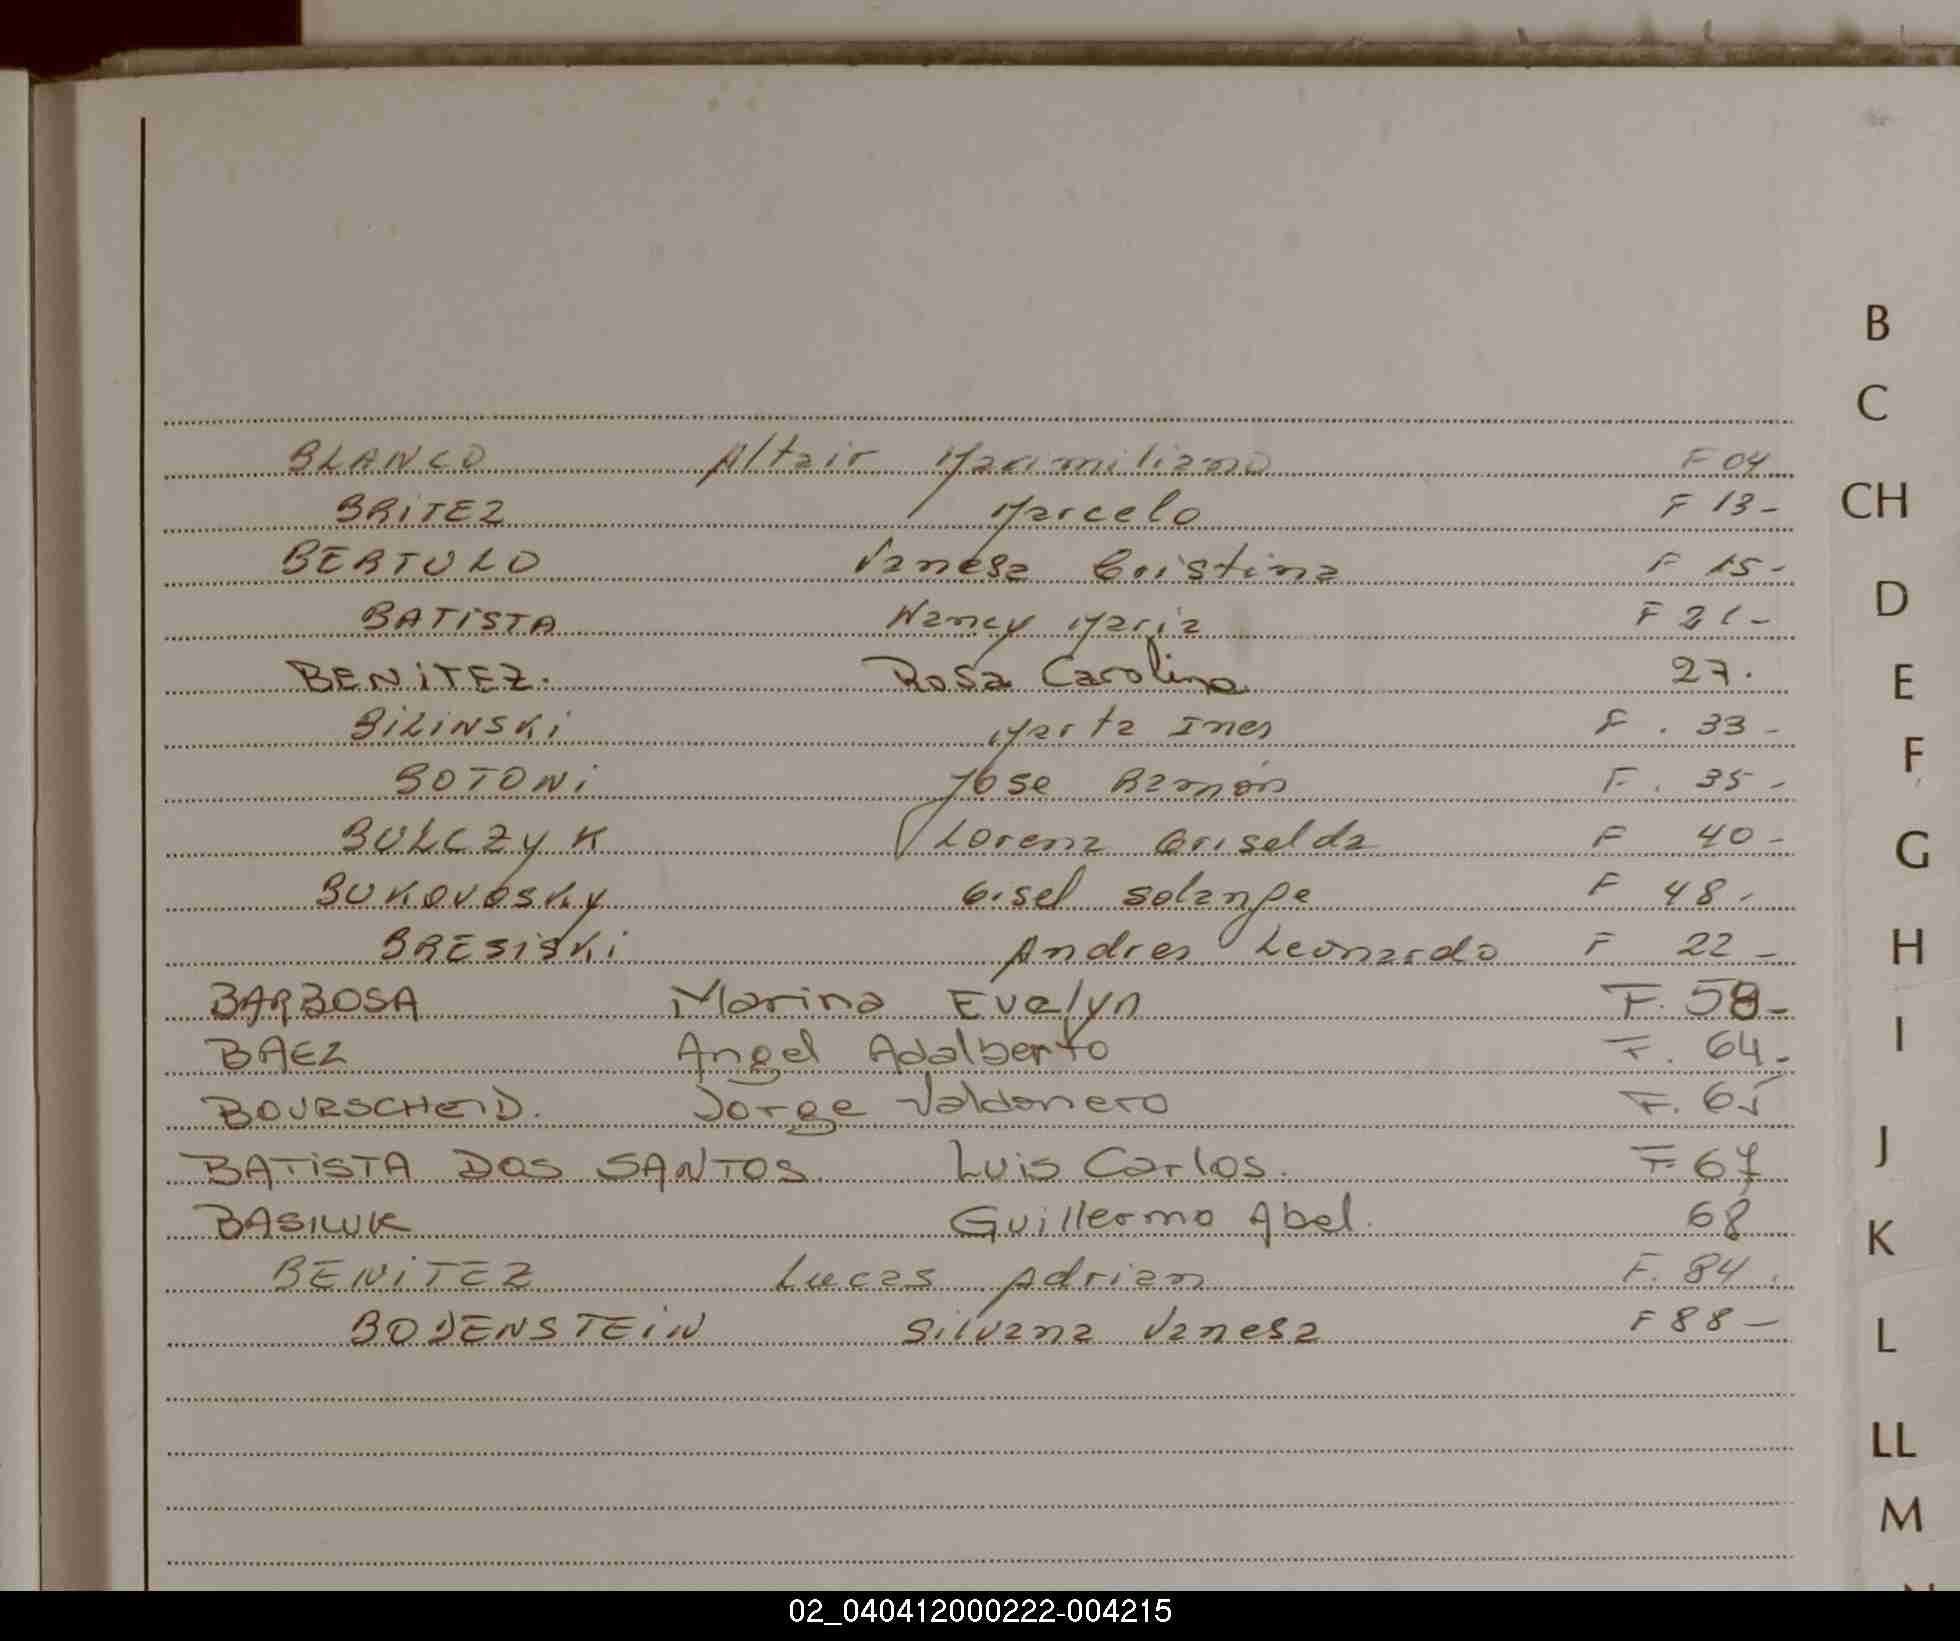 B
C
BLANCO Altair Maximiliano F 04
BRITEZ Marcelo F 13-
CH
BERTULO Vanesa Cristina F 15-
BATISTA Nancy Maria F 21-
D
BENITEZ. Rosa Carolina 27.
E
BILINSKI Marta Ines F . 33-
F
BOTONI Jose Ramón F . 35-
BULCZYK Lorena Griselda F 40-
G
BUKOVOSKY Gisel Solange F 48-
BRESISKI Andres Leonardo F 22-
H
BARBOSA Marina Evelyn F. 58-
BAEZ Angel Adalberto F. 64-
I
BOURSCHEID. Jorge Valdomero F. 65
J
BATISTA DOS SANTOS Luis Carlos. F. 67
BASILUK Guillermo Abel. 68
K
BENITEZ Lucas Adrian F. 84.
BODENSTEIN Silvana Vanesa F 88-
L
LL
M
02_040412000222-004215